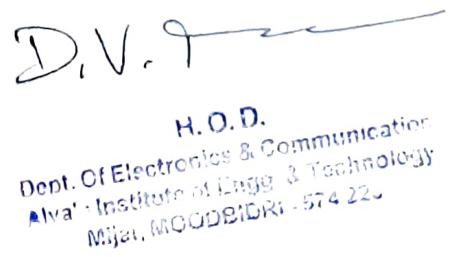 D.V.
H.O.D.
Dept. Of Electronics & Communication
Alva's Institute of Engg. & Technology
Mijar, MOODBIDRI - 574 22